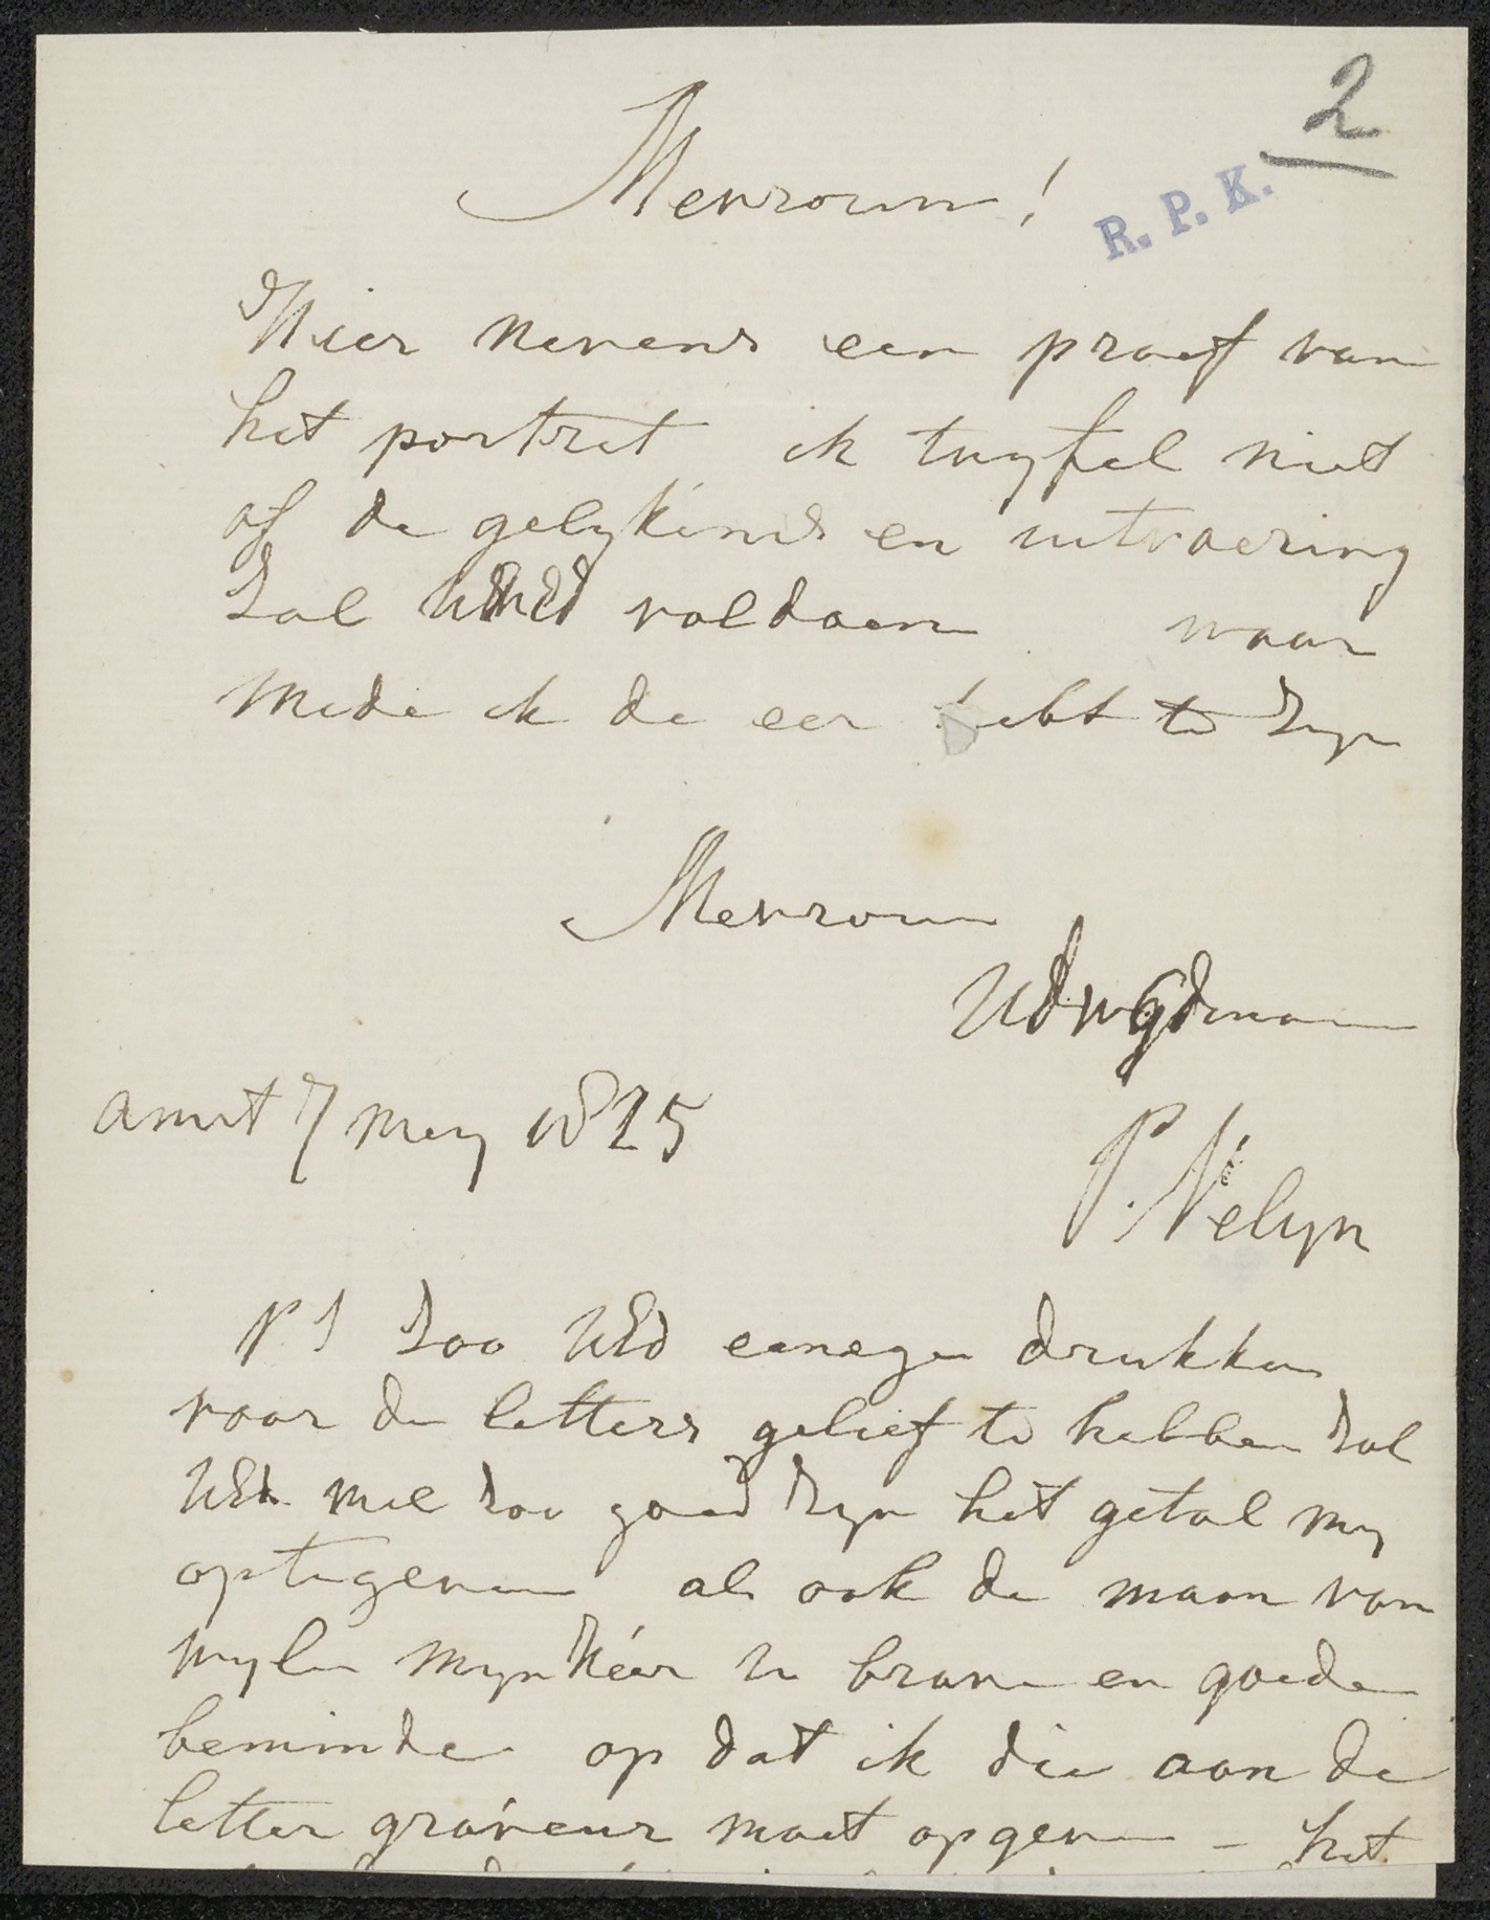 2
R. P. K.
Mevrouw!
Hier nevens een proef van
het portret ik twyfel niet
of de gelykenis en uitvoering
zal UWEd voldoen waar
mede ik de eer hebt te zyn
Mevrouw
UdwEdenaar
Amst 7 mey 1825
P. Velyn
PS Zoo UEd eenege drukken
voor de letters gelief te hebben zal
UEd wel zoo goed zyn het getal my
optegeven als ook de naam van
wylen mynheer u brave en goede
beminde op dat ik die aan de
letter graveur moet opgeven – het